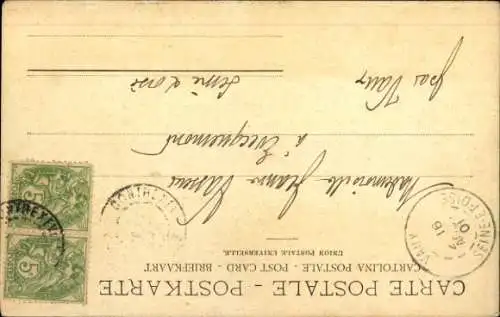 CARTE POSTALE - POSTKARTE
CARTOLINA POSTALE - POST CARD - BRIEFKAART
UNION POSTALE UNIVERSELLE.
Mademoiselle Jeanne
à Ecquemont
par Vaux
Seine & Oise
VAUX
SEINE-ET-OISE
16
01
5
5